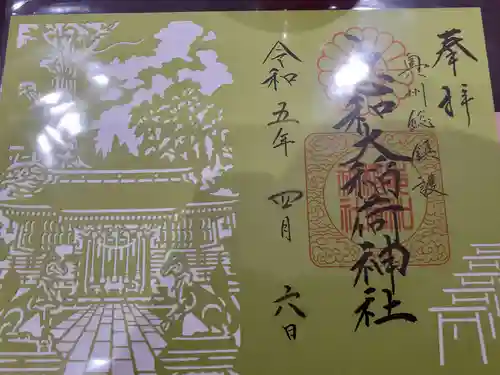 奉拝
奥州総鎮護
志和大稲荷神社
令和五年 四月 六日